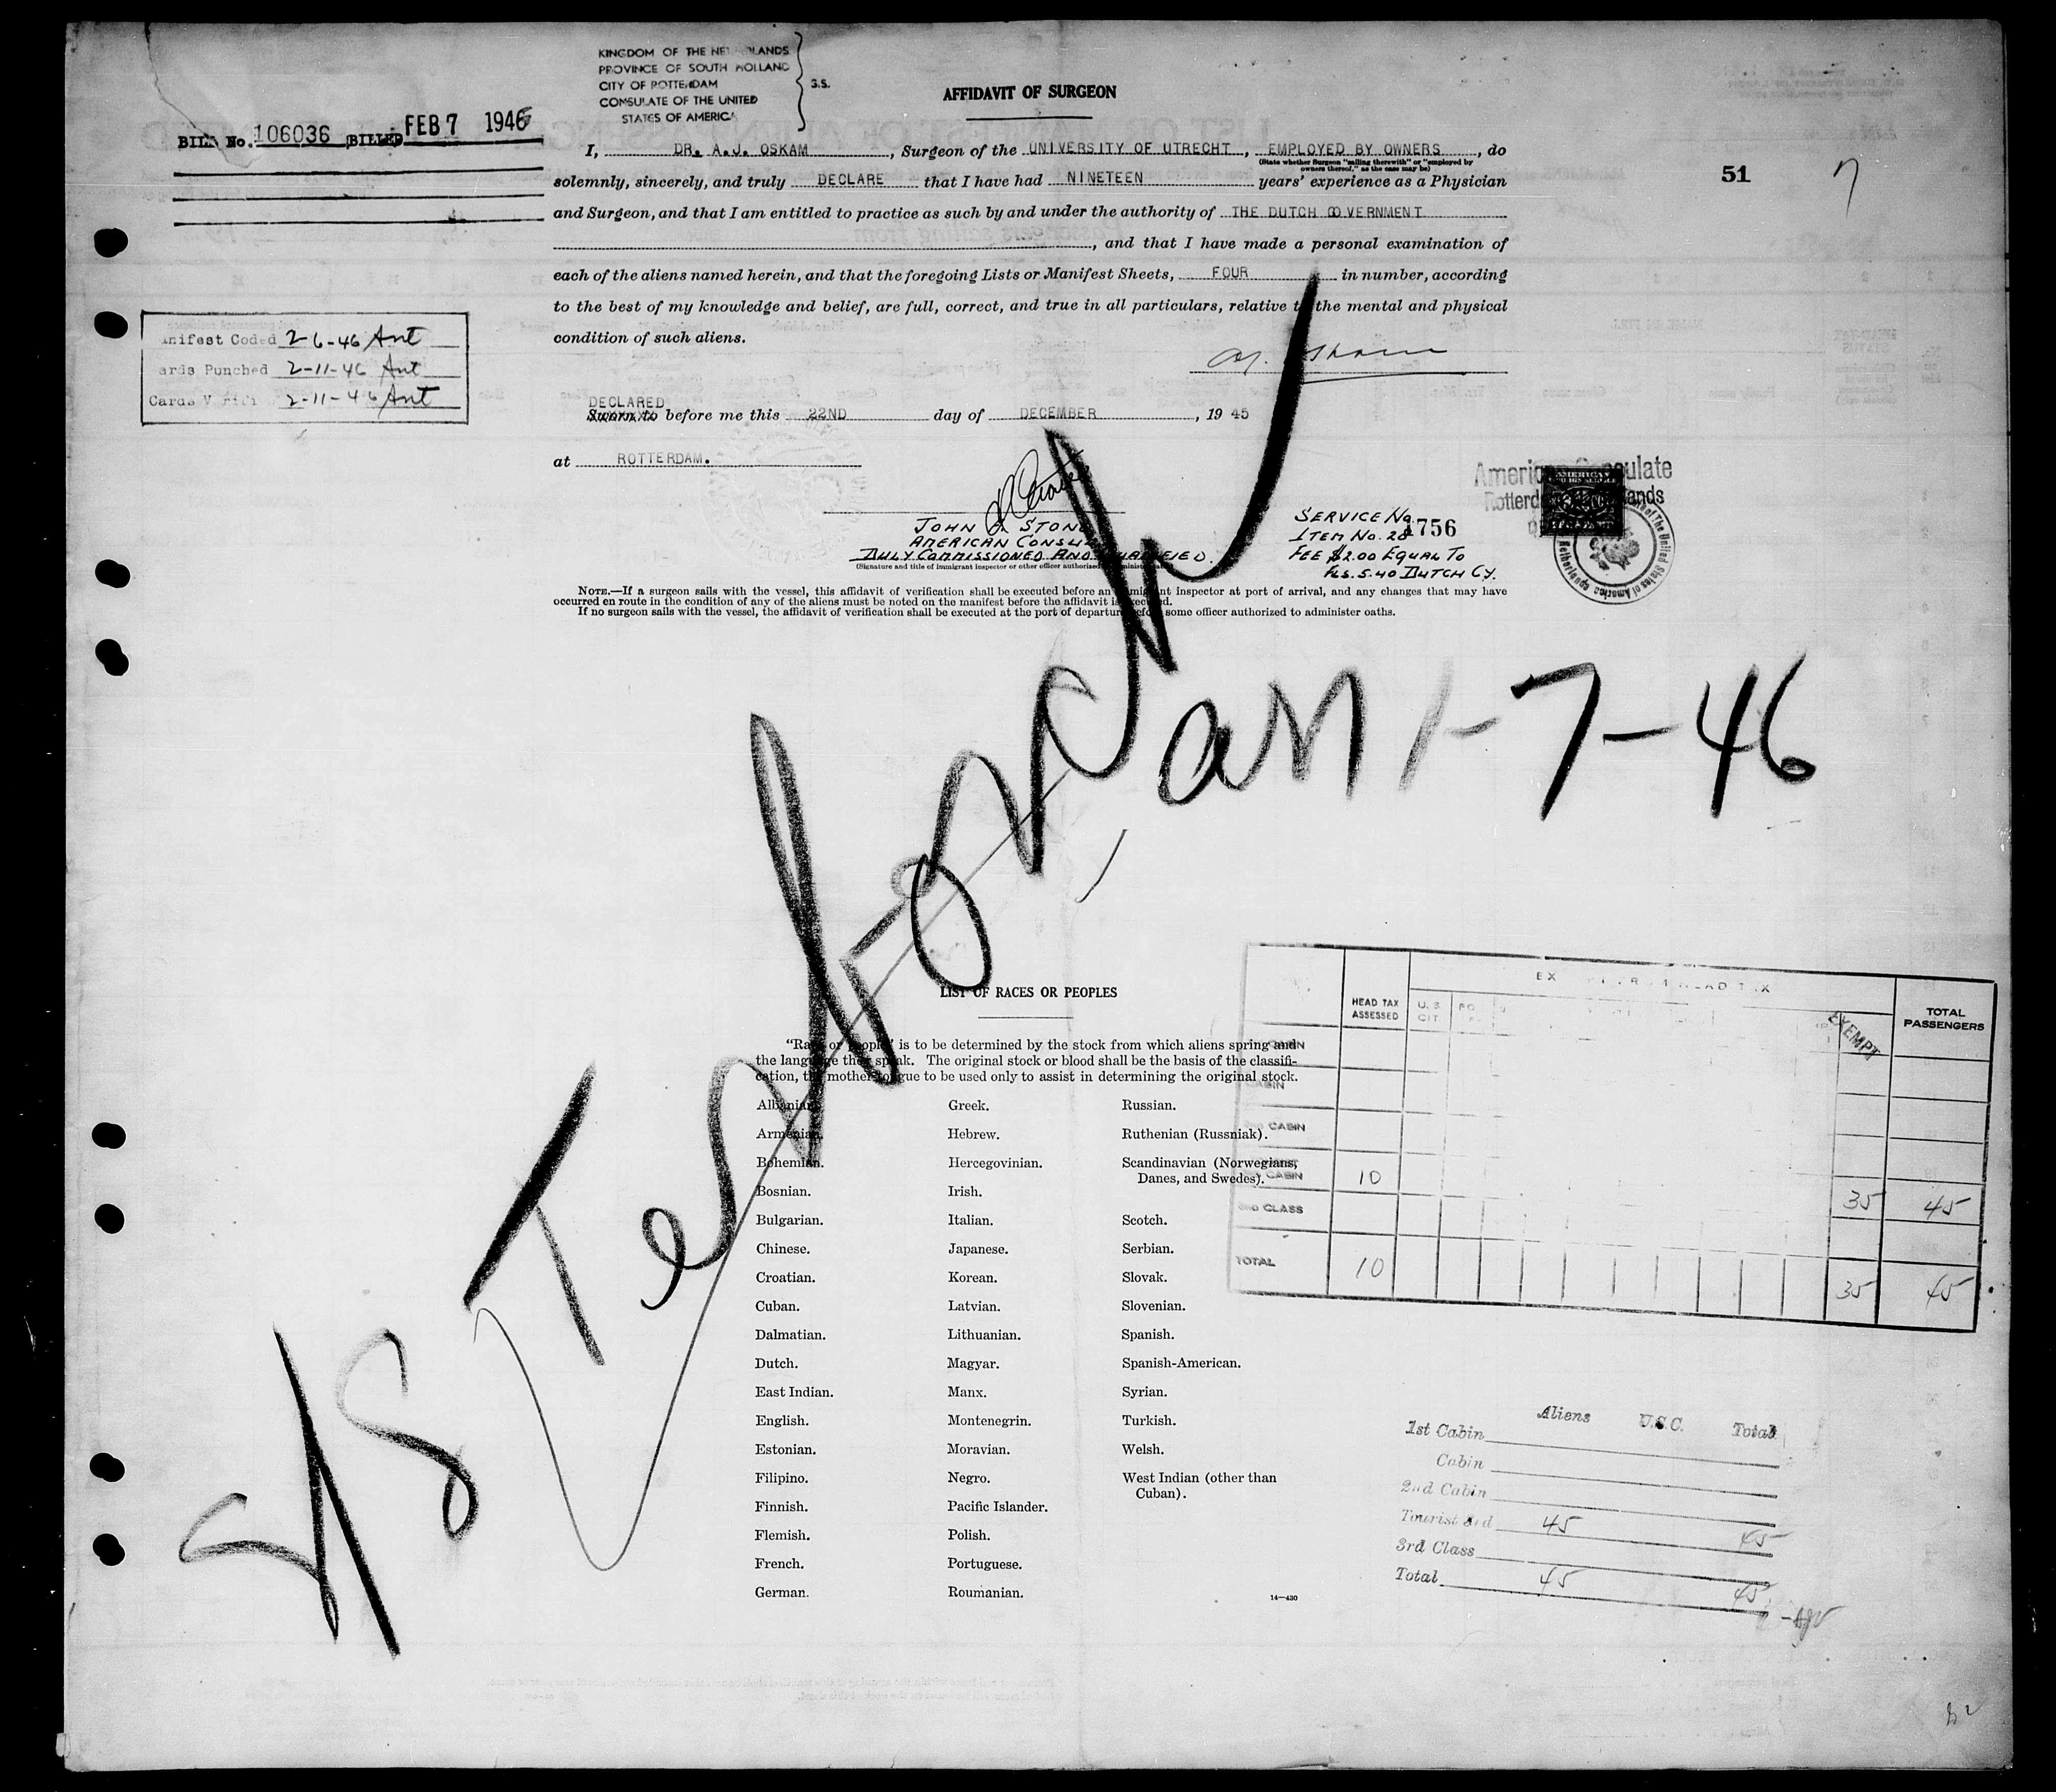 KINGDOM OF THE NETHERLANDS
PROVINCE OF SOUTH HOLLAND
CITY OF ROTTERDAM
CONSULATE OF THE UNITED
STATES OF AMERICA
S.S.
AFFIDAVIT OF SURGEON
BILL No. 106036 BILLED FEB 7 1946
I, DR. A.J. OSKAM, Surgeon of the UNIVERSITY OF UTRECHT, EMPLOYED BY OWNERS, do
(State whether Surgeon "sailing therewith" or "employed by
owners thereof," as the case may be)
solemnly, sincerely, and truly DECLARE that I have had NINETEEN years' experience as a Physician
51
and Surgeon, and that I am entitled to practice as such by and under the authority of THE DUTCH GOVERNMENT
, and that I have made a personal examination of
each of the aliens named herein, and that the foregoing Lists or Manifest Sheets, FOUR in number, according
to the best of my knowledge and belief, are full, correct, and true in all particulars, relative to the mental and physical
condition of such aliens.
anifest Coded 2-6-46 Ant
ards Punched 2-11-46 Ant
Cards 2-11-46 Ant
DECLARED
Sworn to before me this 22ND day of DECEMBER, 19 45
at ROTTERDAM.
JOHN F. STONE
AMERICAN CONSUL
DULY COMMISSIONED AND QUALIFIED.
(Signature and title of immigrant inspector or other officer authorized to administer oaths)
SERVICE No. 1756
ITEM No. 28
FEE $2.00 EQUAL TO
FLS. 5.40 DUTCH CY.
American Consulate
Rotterdam, Netherlands
NOTE.—If a surgeon sails with the vessel, this affidavit of verification shall be executed before an immigrant inspector at port of arrival, and any changes that may have
occurred en route in the condition of any of the aliens must be noted on the manifest before the affidavit is executed.
If no surgeon sails with the vessel, the affidavit of verification shall be executed at the port of departure before some officer authorized to administer oaths.
S/S Terborch
arr 1-7-46
LIST OF RACES OR PEOPLES
"Race or people" is to be determined by the stock from which aliens spring and
the language they speak. The original stock or blood shall be the basis of the classifi-
cation, the mother tongue to be used only to assist in determining the original stock.
Albanian.
Armenian.
Bohemian.
Bosnian.
Bulgarian.
Chinese.
Croatian.
Cuban.
Dalmatian.
Dutch.
East Indian.
English.
Estonian.
Filipino.
Finnish.
Flemish.
French.
German.
Greek.
Hebrew.
Hercegovinian.
Irish.
Italian.
Japanese.
Korean.
Latvian.
Lithuanian.
Magyar.
Manx.
Montenegrin.
Moravian.
Negro.
Pacific Islander.
Polish.
Portuguese.
Roumanian.
Russian.
Ruthenian (Russniak).
Scandinavian (Norwegians,
Danes, and Swedes).
Scotch.
Serbian.
Slovak.
Slovenian.
Spanish.
Spanish-American.
Syrian.
Turkish.
Welsh.
West Indian (other than
Cuban).
14—430
HEAD TAX
ASSESSED
U.S.
CIT.
EXEMPT
TOTAL
PASSENGERS
CABIN
CABIN
CABIN 10 35 45
CLASS
TOTAL 10 35 45
Aliens U.S.C. Total
1st Cabin
Cabin
2nd Cabin
Tourist 3rd 45 45
3rd Class
Total 45 45